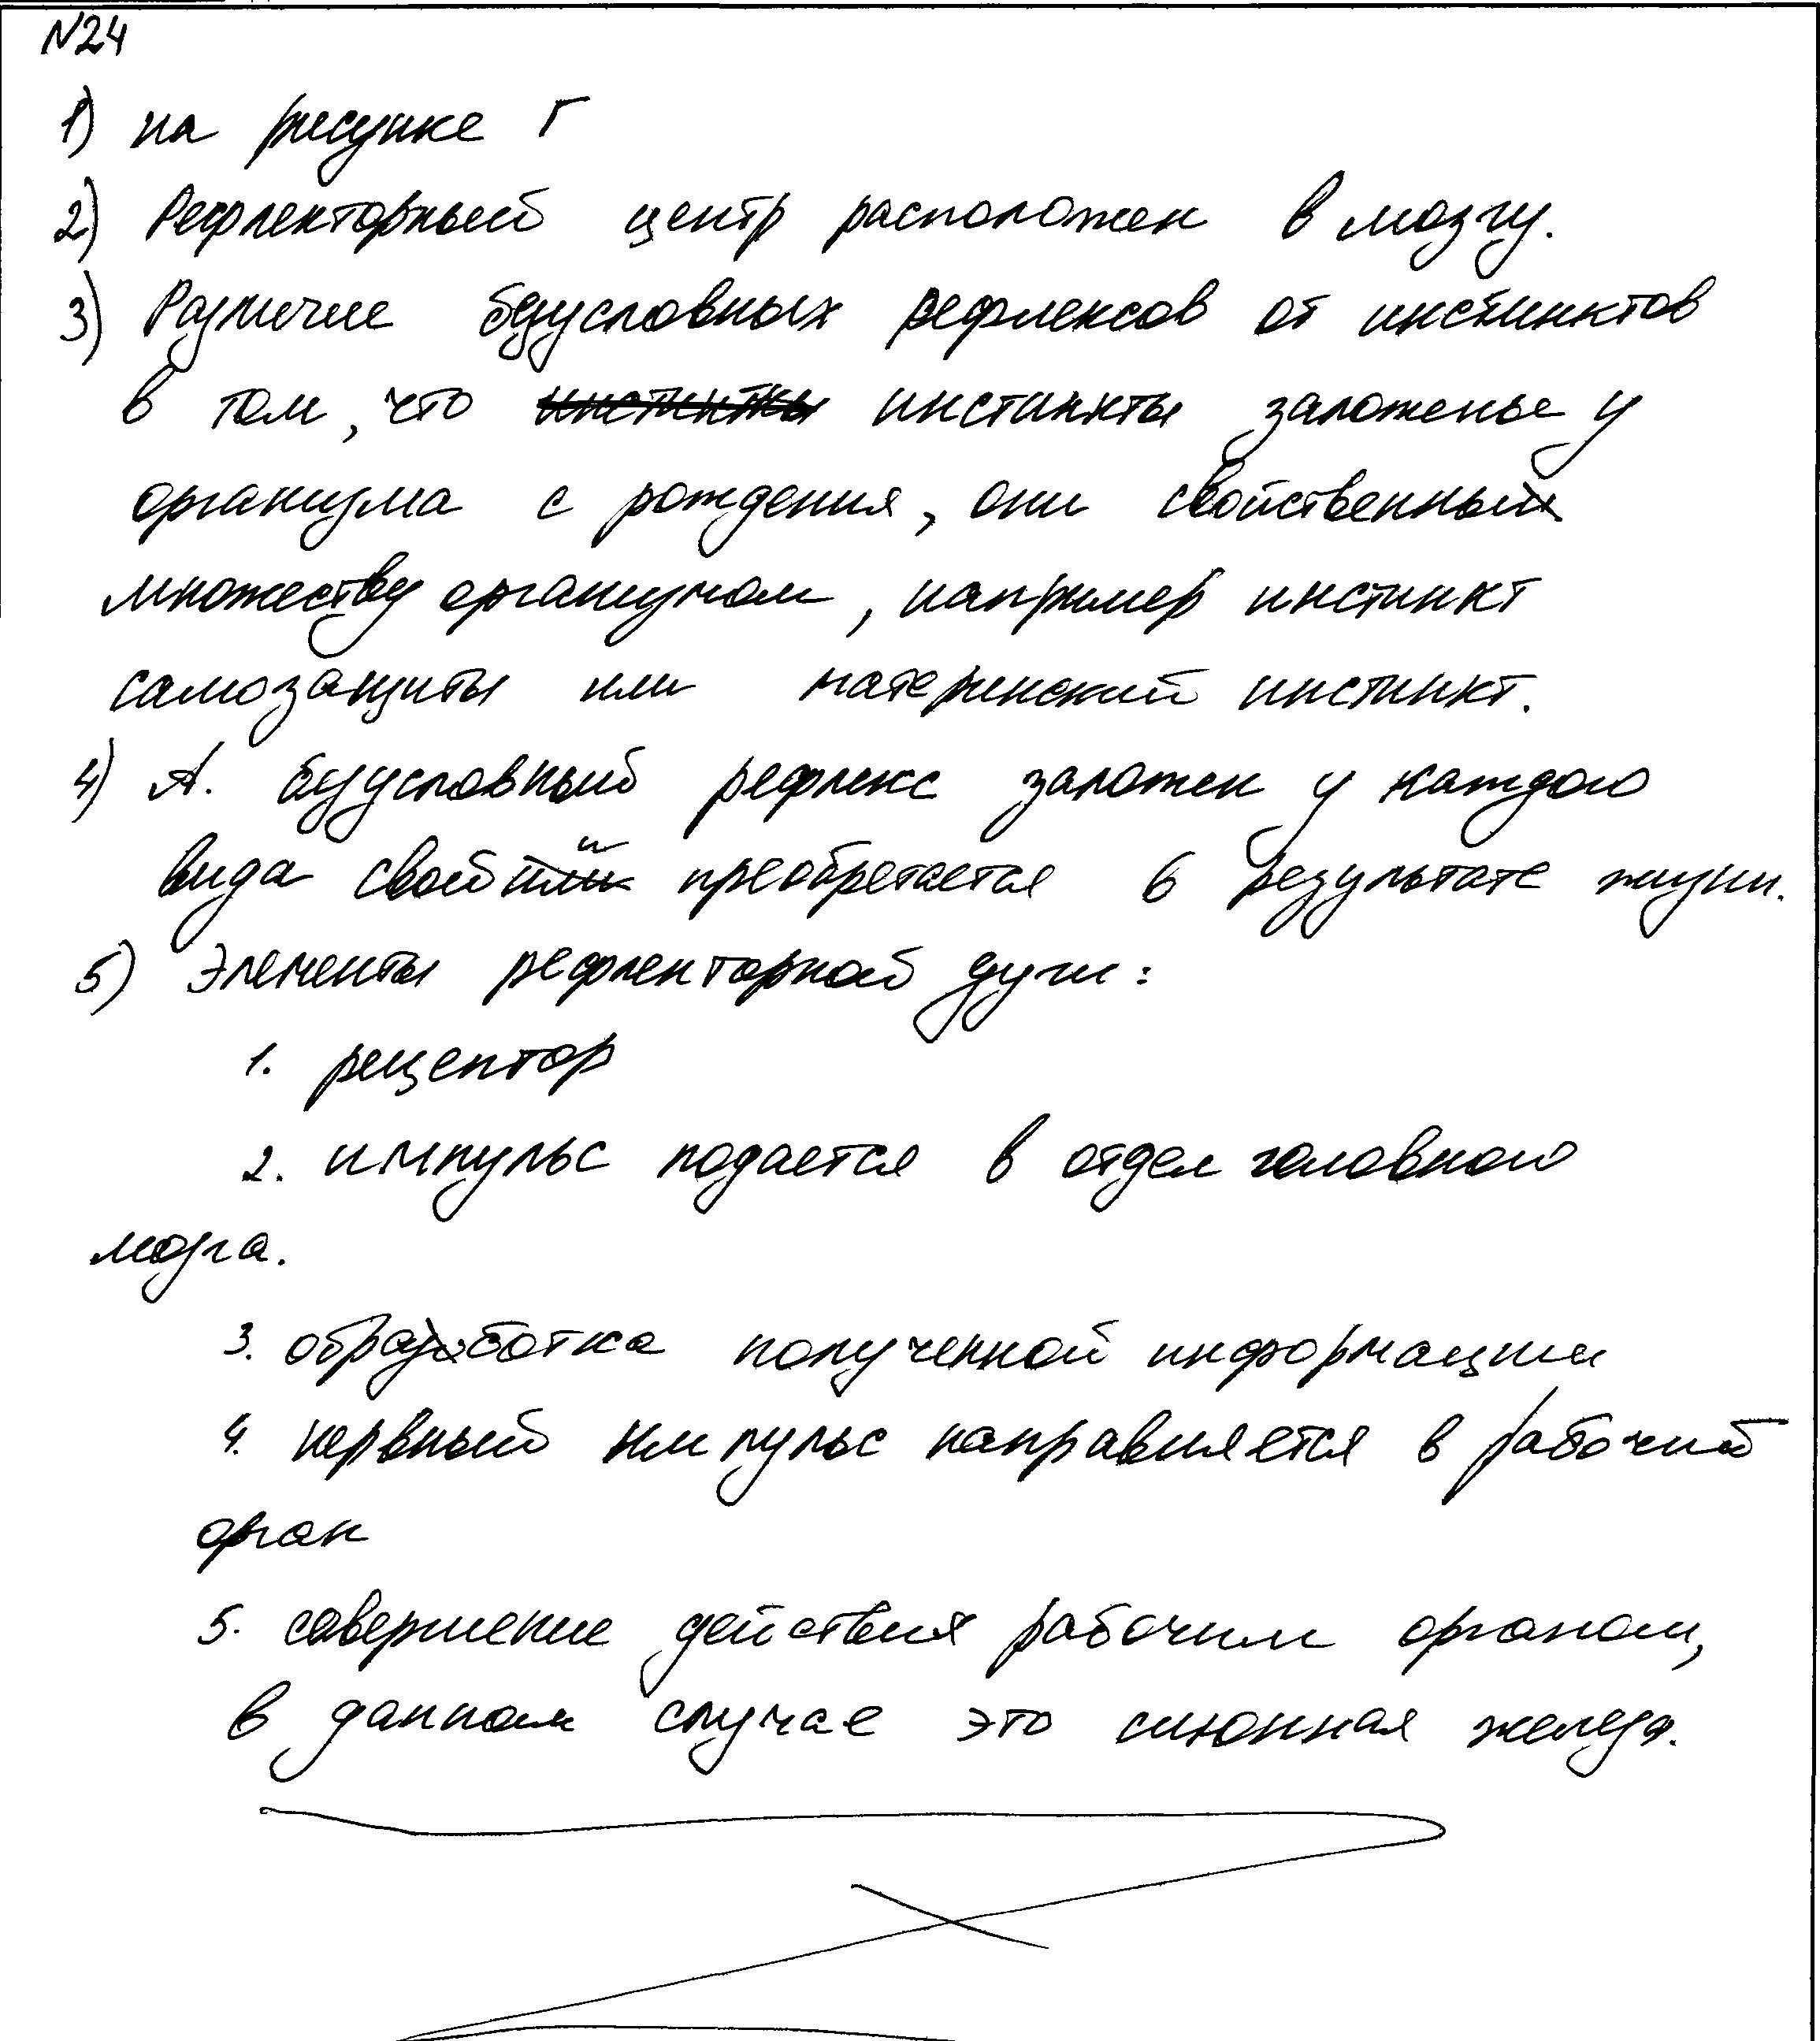 №24
1) на рисунке Г
2) Рефлекторный центр расположен в мозгу.
3) Различие безусловных рефлексов от инстинктов
в том, что инстинкты инстинкты заложены у
организма с рождения, они свойственны
множеству организмом, например инстинкт
самозащиты или материнский инстинкт.
4) А. безусловный рефлекс заложен у каждого
вида свой и преобретается в результате жизни.
5) Элементы рефлекторной дуги:
1. рецептор
2. импульс подается в отдел головного
мозга.
3. обработка полученной информации
4. нервный импульс направляется в рабочий
орган
5. совершение действия рабочим органом,
в данном случае это слюнная железа.